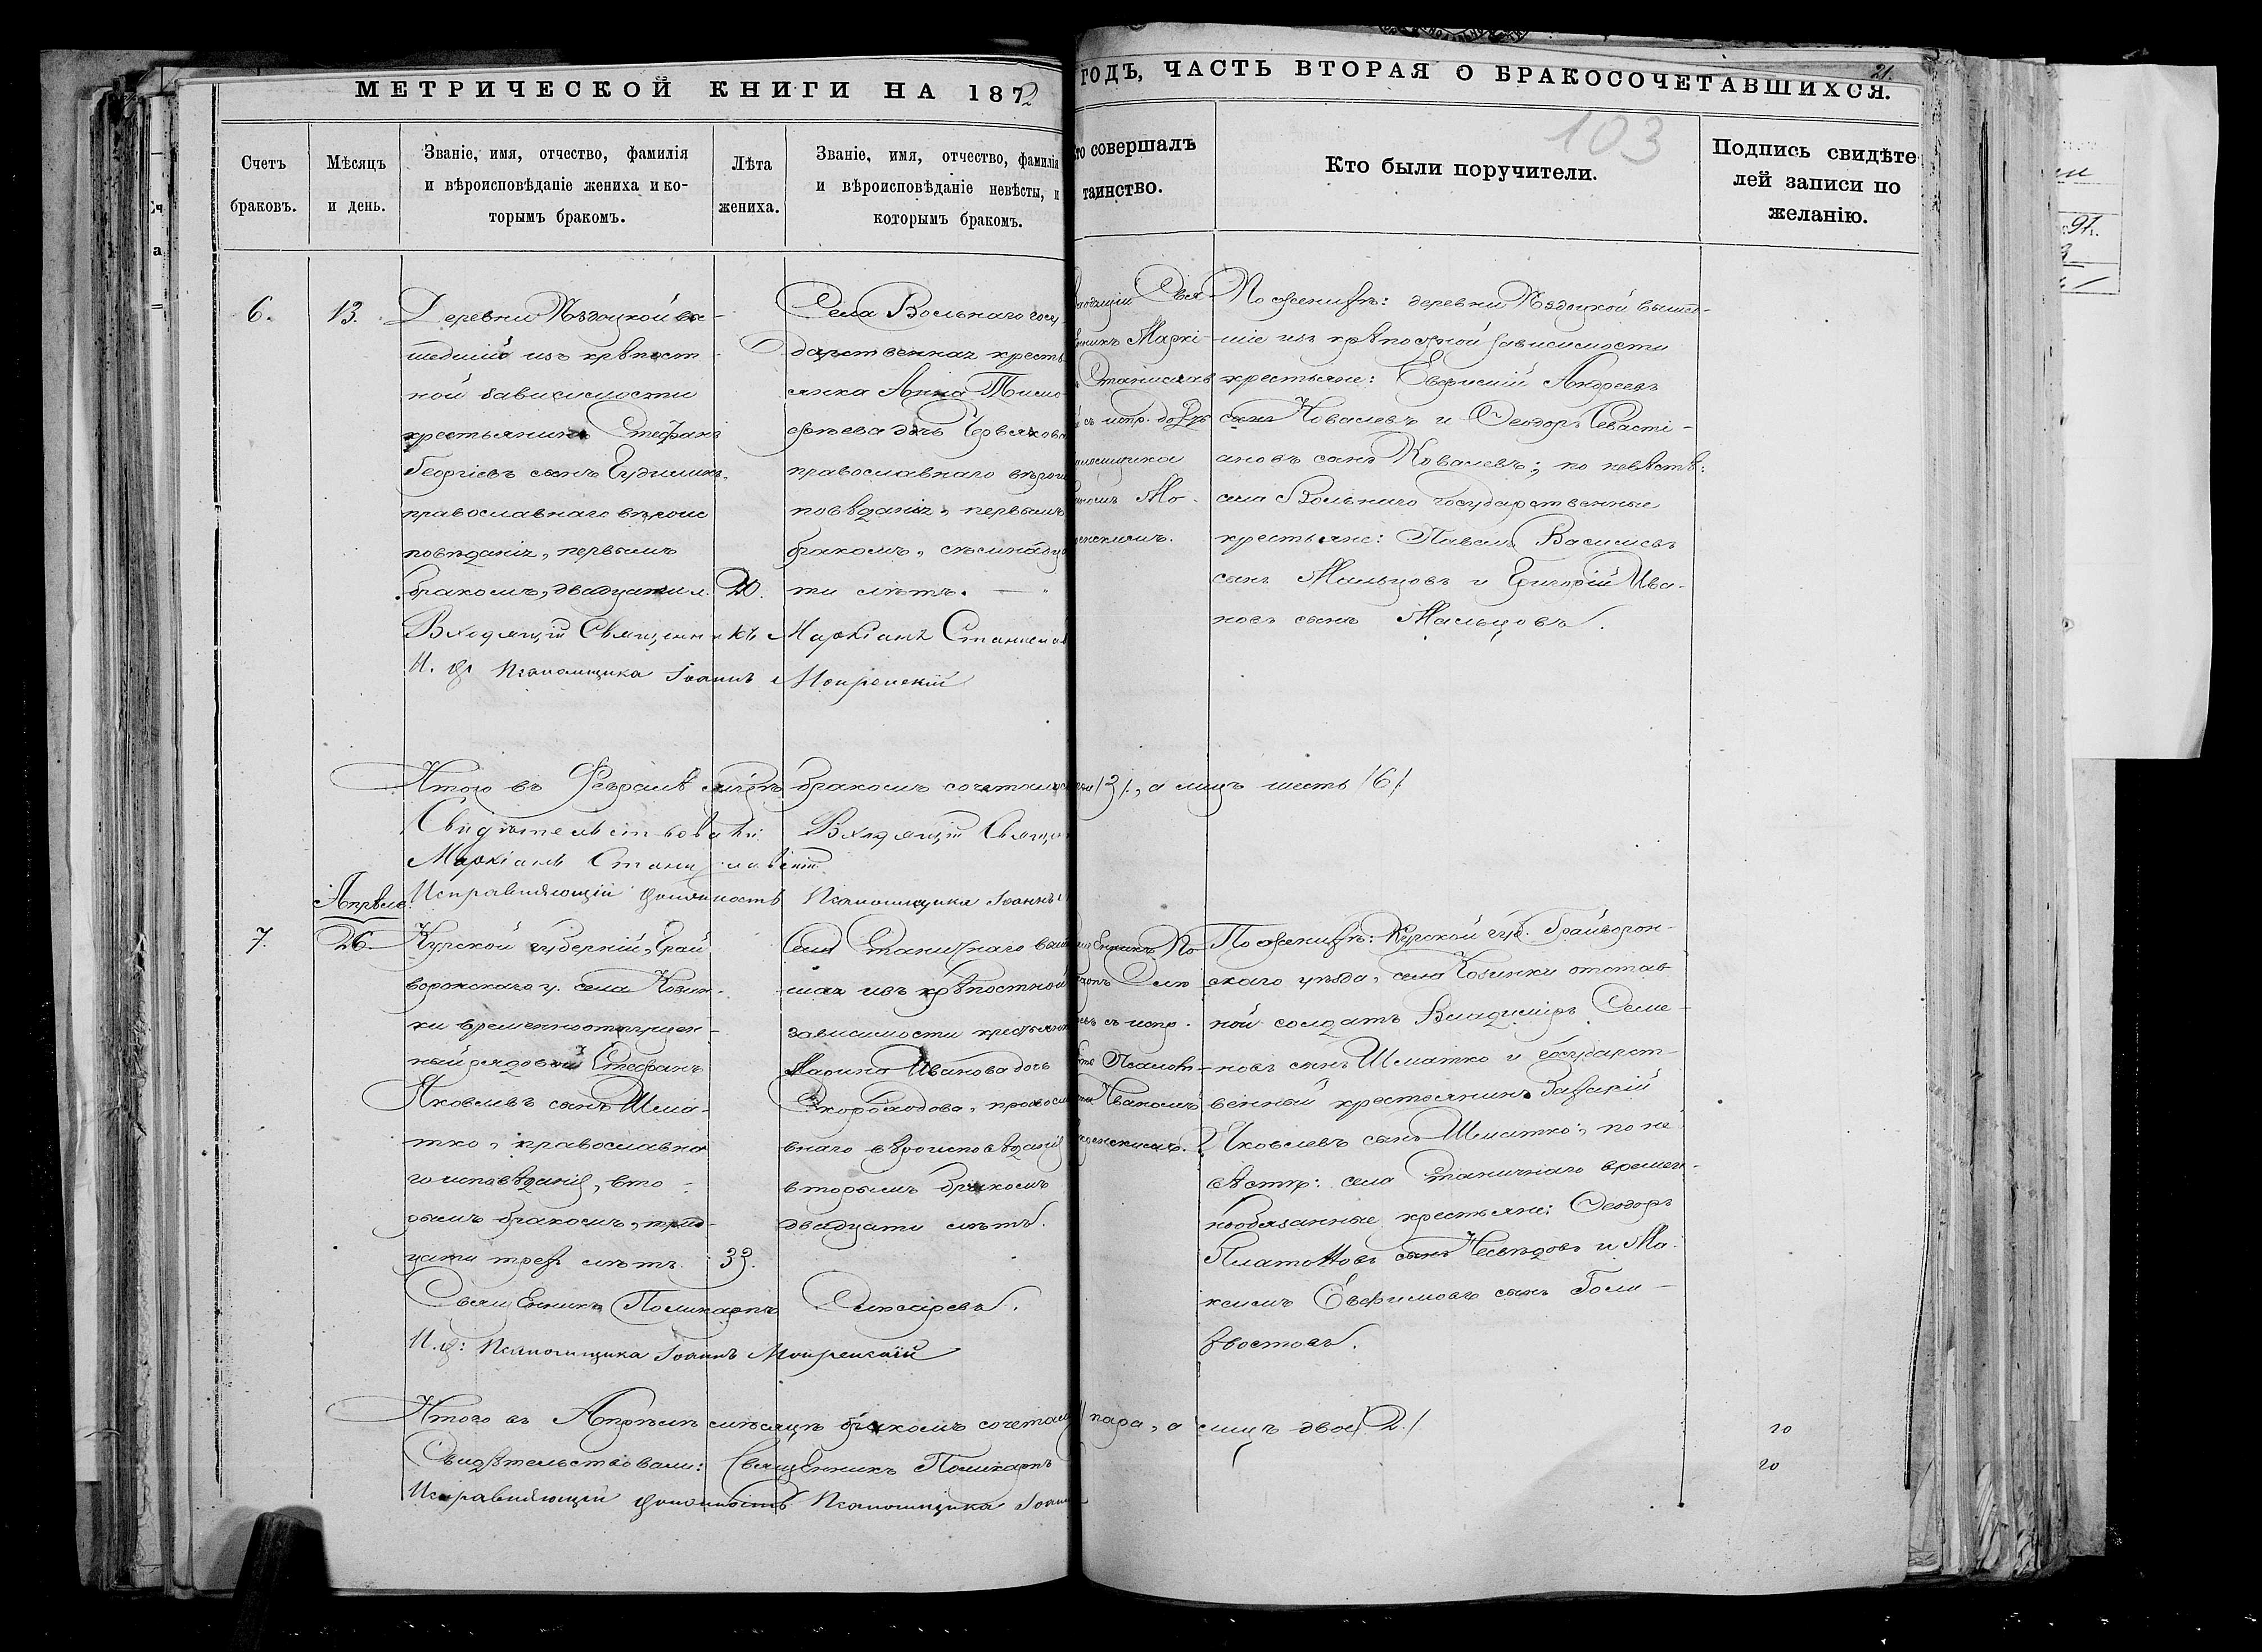 МЕТРИЧЕСКОЙ КНИГИ НА 1872
ГОДЪ, ЧАСТЬ ВТОРАЯ О БРАКОСОЧЕТАВШИХСЯ.
21.
103
Счетъ браковъ.
Мѣсяцъ и день.
Званіе, имя, отчество, фамилія
и вѣроисповѣданіе жениха и ко-
торымъ бракомъ.
Лѣта жениха.
Званіе, имя, отчество, фамилія
и вѣроисповѣданіе невѣсты, и
которымъ бракомъ.
то совершалъ
таинство.
Кто были поручители.
Подпись свидѣте
лей записи по
желанію.
6.
13.
Деревни вы-
шедшій изъ крѣпост
ной зависимости
крестьянинъ Стефанъ
Георгіевъ сынъ
православнаго вѣроис
повѣданія, первымъ
бракомъ, двадцати л.
20.
Села Вольнаго госу-
дарственная кресть
янка Анна Тимо-
феева дочь Червякова
православнаго вѣрои
повѣданія, первымъ
бракомъ,
ти лѣтъ.
Входящій Священникъ Маркіанъ Станислав
И. д. Псаломщика Іоаннъ
Свя-
никъ Маркі-
Станислав
съ испр. долж
псаломщика
По женихѣ: деревни вышед-
шіе изъ крѣпостной зависимости
крестьяне: Евфимій Андреевъ
сынъ Ковалевъ и Ѳеодоръ Севасті-
ановъ сынъ Ковалевъ; по невѣстѣ:
села Вольнаго государственные
крестьяне: Павелъ Васильевъ
сынъ Мальцовъ и Григорій Ива-
новъ сынъ Мальцовъ.
Итого въ Февралѣ м-цѣ бракомъ сочеталис /3/, а лицъ шесть /6/
Свидѣтельствовали: Входящій Свящ
Маркіанъ Станиславскій
Исправляющій должность Псаломщика Іоаннъ
Апрѣль
7.
26.
Курской губерніи, Грай
воронскаго у. села Козин-
ки временноотпущен-
ный рядовой Стефанъ
Яковлевъ сынъ Шма-
тко, православна
го исповѣданія, вто-
рымъ бракомъ, трид-
цати трехъ лѣтъ.
33.
Села Станичнаго вы
шая изъ крѣпостной
зависимости крестьянк
Марина Иванова дочь
Скороходова, правосла
внаго вѣроисповѣданія
вторымъ бракомъ
двадцати лѣтъ.
Священникъ Поликарпъ Слюсаревъ.
И. д: Псаломщика Іоаннъ
щенникъ По
карпъ Слю
съ испр.
Псалом-
По женихѣ: Курской губ. Грайворон-
скаго уѣзда, села Козинки отстав
ной солдатъ Владиміръ Семе-
новъ сынъ Шматко и государст-
венный крестьянинъ
Яковлевъ сынъ Шматко; по не
вѣстѣ: села Станичнаго времен-
нообязанные крестьяне: Ѳеодоръ
Платоновъ сынъ и Ма-
ксимъ Евфимовъ сынъ Голо-
хвостовъ.
Итого въ Апрѣлѣ мѣсяцѣ бракомъ сочетал пара, а лицъ двое /2./
Свидѣтельствовали: Священникъ Поликарпъ
Исправляющій должность Псаломщика Іоанн
20
20